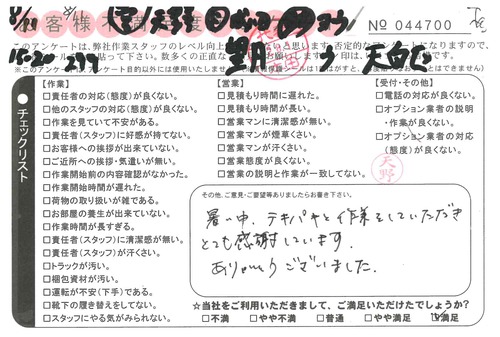 お客様不満足度
№ 044700
このアンケートは、弊社作業スタッフのレベル向上
チェックリスト
【作業】
□責任者の対応(態度)が良くない。
□他のスタッフの対応(態度)が良くない。
□作業を見ていて不安がある。
□責任者(スタッフ)に好感が持てない。
□お客様への挨拶が出来ていない。
□ご近所への挨拶・気遣いが無い。
□作業開始前の内容確認がなかった。
□作業開始時間が遅れた。
□荷物の取り扱いが雑である。
□お部屋の養生が出来ていない。
□作業時間が長すぎる。
□責任者(スタッフ)に清潔感が無い。
□責任者(スタッフ)が汗くさい。
□トラックが汚い。
□梱包資材が汚い。
□運転が不安(下手)である。
□靴下の履き替えをしてない。
□スタッフにやる気がみられない。
【営業】
□見積もり時間に遅れた。
□見積もり時間が長い。
□営業マンに清潔感が無い。
□営業マンが煙草くさい。
□営業マンが汗くさい。
□営業態度が良くない。
□営業の説明と作業が一致してない。
【受付・その他】
□電話の対応が良くない。
□オプション業者の説明
・作業が良くない。
□オプション業者の対応
(態度)が良くない。
天野
その他、ご意見・ご要望等ありましたらお書き下さい。
暑い中、テキパキと作業をしていただき
とても感謝しています。
ありがとうございました。
☆当社をご利用いただきまして、ご満足いただけたでしょうか?
□不満 □やや不満 □普通 □やや満足 ☑満足